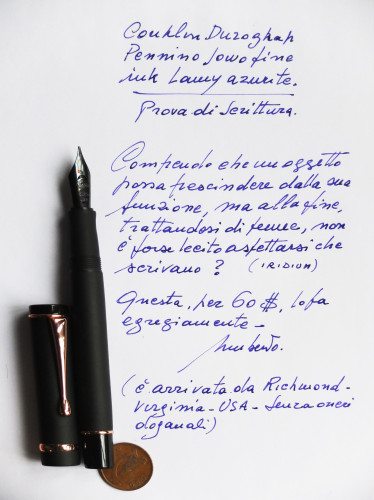 Conklin Duroghap
Pennino Jowo fine
ink Lamy azurite.
Prova di Scrittura.
Comprendo che un oggetto
possa prescindere dalla sua
funzione, ma alla fine,
trattandosi di penne, non
è forse lecito aspettarsi che
scrivano? (IRIDIUM)
Questa, per 60 $, lo fa
egregiamente -
Umberto.
(è arrivata da Richmond-
Virginia - USA - Senza oneri
doganali)